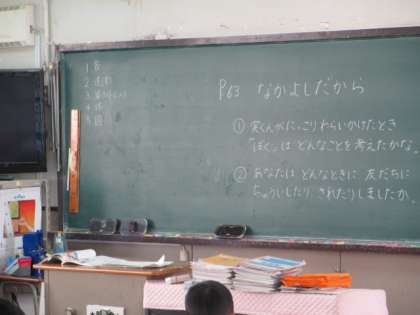 1 音
2 道(算)
4 体
5 図
P63 なかよしだから
① 実くんがにっこりわらいかけたとき
「ぼく」は どんなことを考えたかな。
② あなたは どんなときに 友だちに
ちゅういしたり、されたりしましたか。